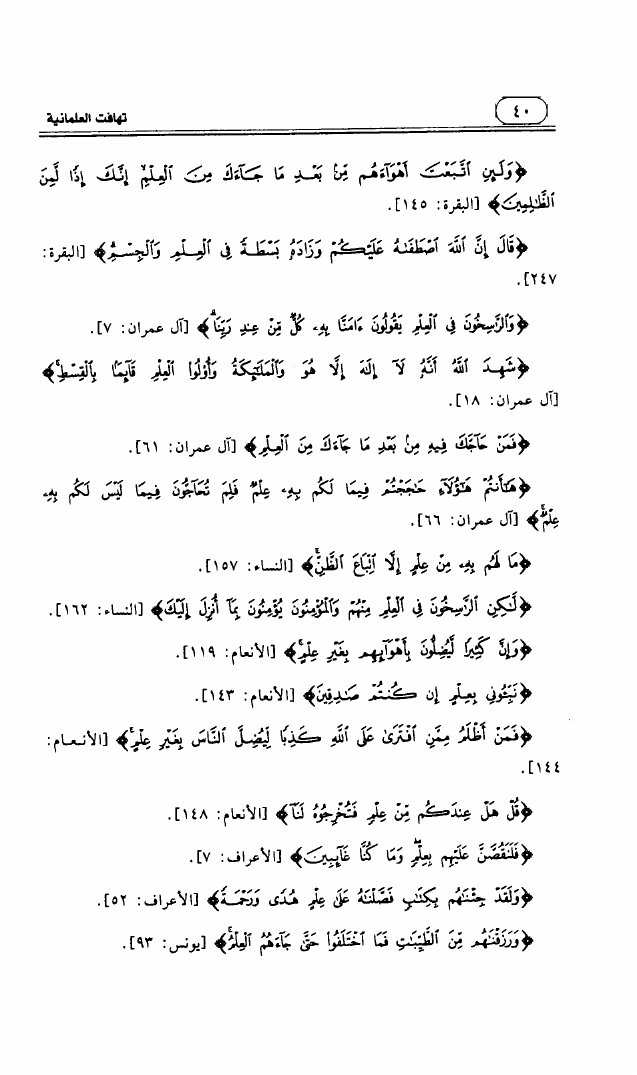 ٤٠
تهافت العلمانية
﴿وَلَئِنِ ٱتَّبَعْتَ أَهْوَآءَهُم مِّنۢ بَعْدِ مَا جَآءَكَ مِنَ ٱلْعِلْمِ إِنَّكَ إِذًا لَّمِنَ
ٱلظَّٰلِمِينَ﴾ [البقرة: ١٤٥].
﴿قَالَ إِنَّ ٱللَّهَ ٱصْطَفَىٰهُ عَلَيْكُمْ وَزَادَهُۥ بَسْطَةً فِى ٱلْعِلْمِ وَٱلْجِسْمِ﴾ [البقرة:
٢٤٧].
﴿وَٱلرَّٰسِخُونَ فِى ٱلْعِلْمِ يَقُولُونَ ءَامَنَّا بِهِۦ كُلٌّ مِّنْ عِندِ رَبِّنَا﴾ [آل عمران: ٧].
﴿شَهِدَ ٱللَّهُ أَنَّهُۥ لَآ إِلَٰهَ إِلَّا هُوَ وَٱلْمَلَٰٓئِكَةُ وَأُو۟لُوا۟ ٱلْعِلْمِ قَآئِمًۢا بِٱلْقِسْطِ﴾
[آل عمران: ١٨].
﴿فَمَنْ حَآجَّكَ فِيهِ مِنۢ بَعْدِ مَا جَآءَكَ مِنَ ٱلْعِلْمِ﴾ [آل عمران: ٦١].
﴿هَٰٓأَنتُمْ هَٰٓؤُلَآءِ حَٰجَجْتُمْ فِيمَا لَكُم بِهِۦ عِلْمٌ فَلِمَ تُحَآجُّونَ فِيمَا لَيْسَ لَكُم بِهِۦ
عِلْمٌ﴾ [آل عمران: ٦٦].
﴿مَا لَهُم بِهِۦ مِنْ عِلْمٍ إِلَّا ٱتِّبَاعَ ٱلظَّنِّ﴾ [النساء: ١٥٧].
﴿لَّٰكِنِ ٱلرَّٰسِخُونَ فِى ٱلْعِلْمِ مِنْهُمْ وَٱلْمُؤْمِنُونَ يُؤْمِنُونَ بِمَآ أُنزِلَ إِلَيْكَ﴾ [النساء: ١٦٢].
﴿وَإِنَّ كَثِيرًا لَّيُضِلُّونَ بِأَهْوَآئِهِم بِغَيْرِ عِلْمٍ﴾ [الأنعام: ١١٩].
﴿نَبِّـُٔونِى بِعِلْمٍ إِن كُنتُمْ صَٰدِقِينَ﴾ [الأنعام: ١٤٣].
﴿فَمَنْ أَظْلَمُ مِمَّنِ ٱفْتَرَىٰ عَلَى ٱللَّهِ كَذِبًا لِّيُضِلَّ ٱلنَّاسَ بِغَيْرِ عِلْمٍ﴾ [الأنعام:
١٤٤].
﴿قُلْ هَلْ عِندَكُم مِّنْ عِلْمٍ فَتُخْرِجُوهُ لَنَآ﴾ [الأنعام: ١٤٨].
﴿فَلَنَقُصَّنَّ عَلَيْهِم بِعِلْمٍ وَمَا كُنَّا غَآئِبِينَ﴾ [الأعراف: ٧].
﴿وَلَقَدْ جِئْنَٰهُم بِكِتَٰبٍ فَصَّلْنَٰهُ عَلَىٰ عِلْمٍ هُدًى وَرَحْمَةً﴾ [الأعراف: ٥٢].
﴿وَرَزَقْنَٰهُم مِّنَ ٱلطَّيِّبَٰتِ فَمَا ٱخْتَلَفُوا۟ حَتَّىٰ جَآءَهُمُ ٱلْعِلْمُ﴾ [يونس: ٩٣].